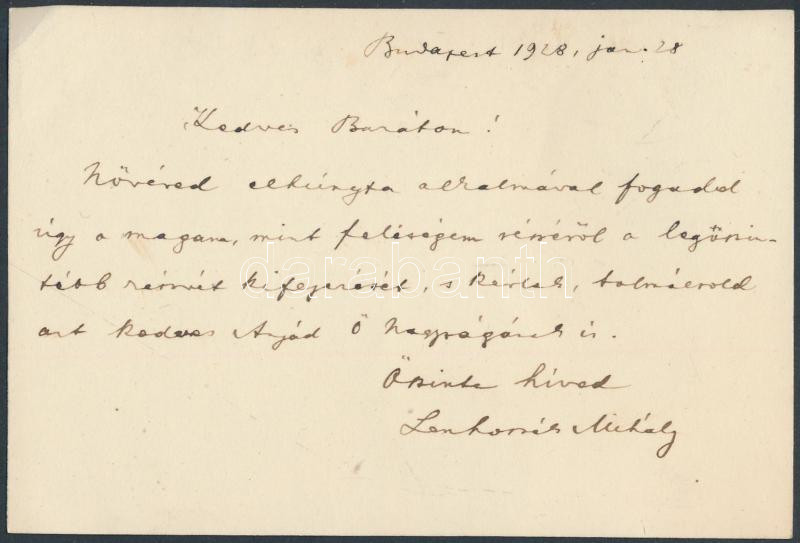 Budapest 1928, jan. 28
Kedves Barátom!
Nővéred elhúnyta alkalmával fogadd
úgy a magam, mint feleségem részéről a legőszin-
tébb részvét kifejezését, s kérlek, tolmácsold
azt kedves Anyád Ő Nagyságának is.
Őszinte híved
Lenhossék Mihály
darabanth